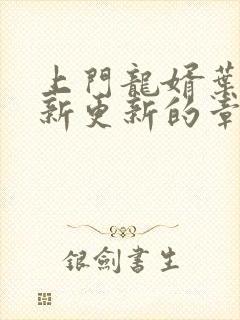 上門龍婿葉
新更新的章
銀劍書生